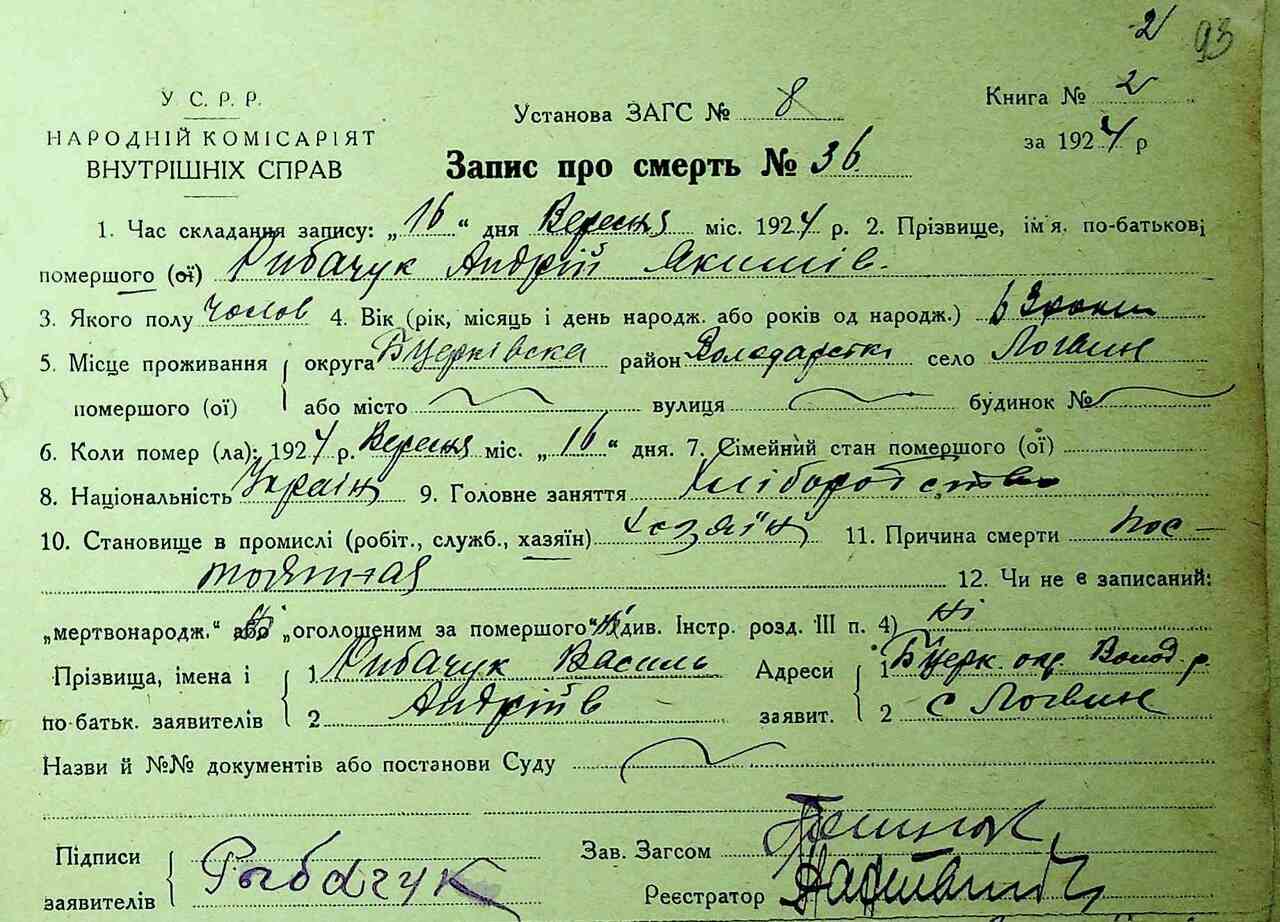 2 93
У. С. Р. Р.
НАРОДНІЙ КОМІСАРІЯТ
ВНУТРІШНІХ СПРАВ
Установа ЗАГС № 8
Книга № 2
за 1924 р
Запис про смерть № 36.
1. Час складання запису: „16“ дня Вересня міс. 1924 р. 2. Прізвище, ім'я. по-батькові
помершого (ої) Рибачук Андрій Якимів.
3. Якого полу Чолов 4. Вік (рік, місяць і день народж. або років од народж.)
5. Місце проживання округа БЦерківська район Володарськ село Логвин
помершого (ої) або місто вулиця будинок №
6. Коли помер (ла): 1924 р. Вересня міс. „16“ дня. 7. Сімейний стан помершого (ої)
8. Національність Україн 9. Головне заняття Хліборобство
10. Становище в промислі (робіт., служб., хазяїн) Хозяїн 11. Причина смерти пос-
тоянная 12. Чи не є записаний:
„мертвонародж.“ або „оголошеним за помершого“ (див. Інстр. розд. III п. 4) ні
Прізвища, імена і 1 Рибачук Василь Адреси 1 БЦерк. окр. Волод. р.
по батьк. заявителів 2 Андріїв заявит. 2 с Логвин
Назви й №№ документів або постанови Суду
Підписи
заявителів Рыбачук
Зав. Загсом
Реєстратор